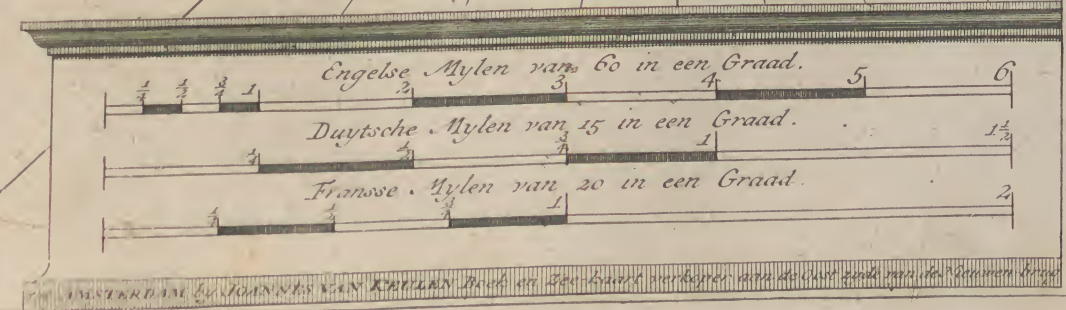 Engelse Mylen van 60 in een Graad.
1/4 1/2 3/4 1 2 3 4 5 6
Duytsche Mylen van 15 in een Graad.
1/4 1/2 3/4 1 1 1/2
Fransse Mylen van 20 in een Graad.
1/4 1/2 3/4 1 2
AMSTERDAM by JOANNES VAN KEULEN Boek en Zee-kaart verkoper aan de Oost zyde van de Nieuwen brug